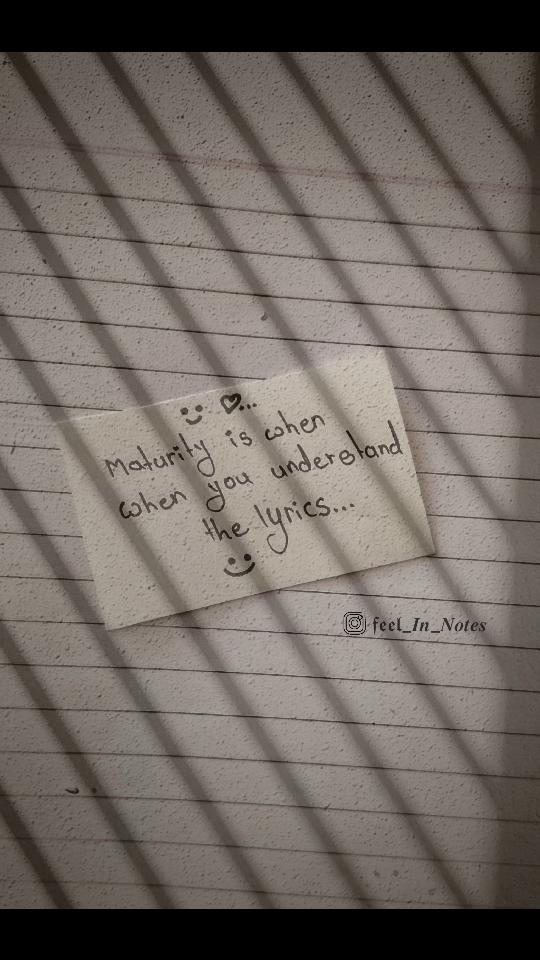 Maturity is when
when you understand
the lyrics...
feel_In_Notes